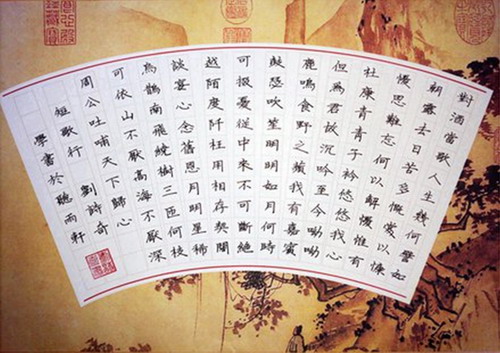 對酒當歌人生幾何譬如
朝露去日苦多慨當以慷
懮思難忘何以解懮惟有
杜康青青子衿悠悠我心
但為君故沉吟至今呦呦
鹿鳴食野之蘋我有嘉賓
鼓瑟吹笙明明如月何時
可掇憂從中來不可斷絕
越陌度阡枉用相存契闊
談宴心念舊恩月明星稀
烏鵲南飛繞樹三匝何枝
可依山不厭高海不厭深
周公吐哺天下歸心
短歌行 劉詩奇
學書於聽雨軒